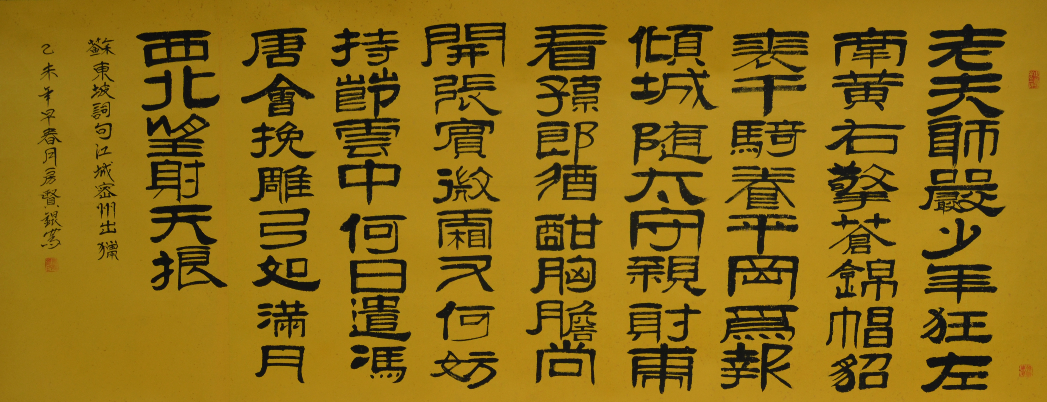 老夫師嚴少年狂左
牽黄右擎蒼錦帽貂
裘千騎眷平岡爲報
傾城随太守親射虎
看孫郎酒酣胸膽尚
開張賓微霜又何妨
持節雲中何日遣馮
唐會挽雕弓如滿月
西北望射天狼
蘇東坡詞句江城密州出獵
乙未年早春月房賢銀書